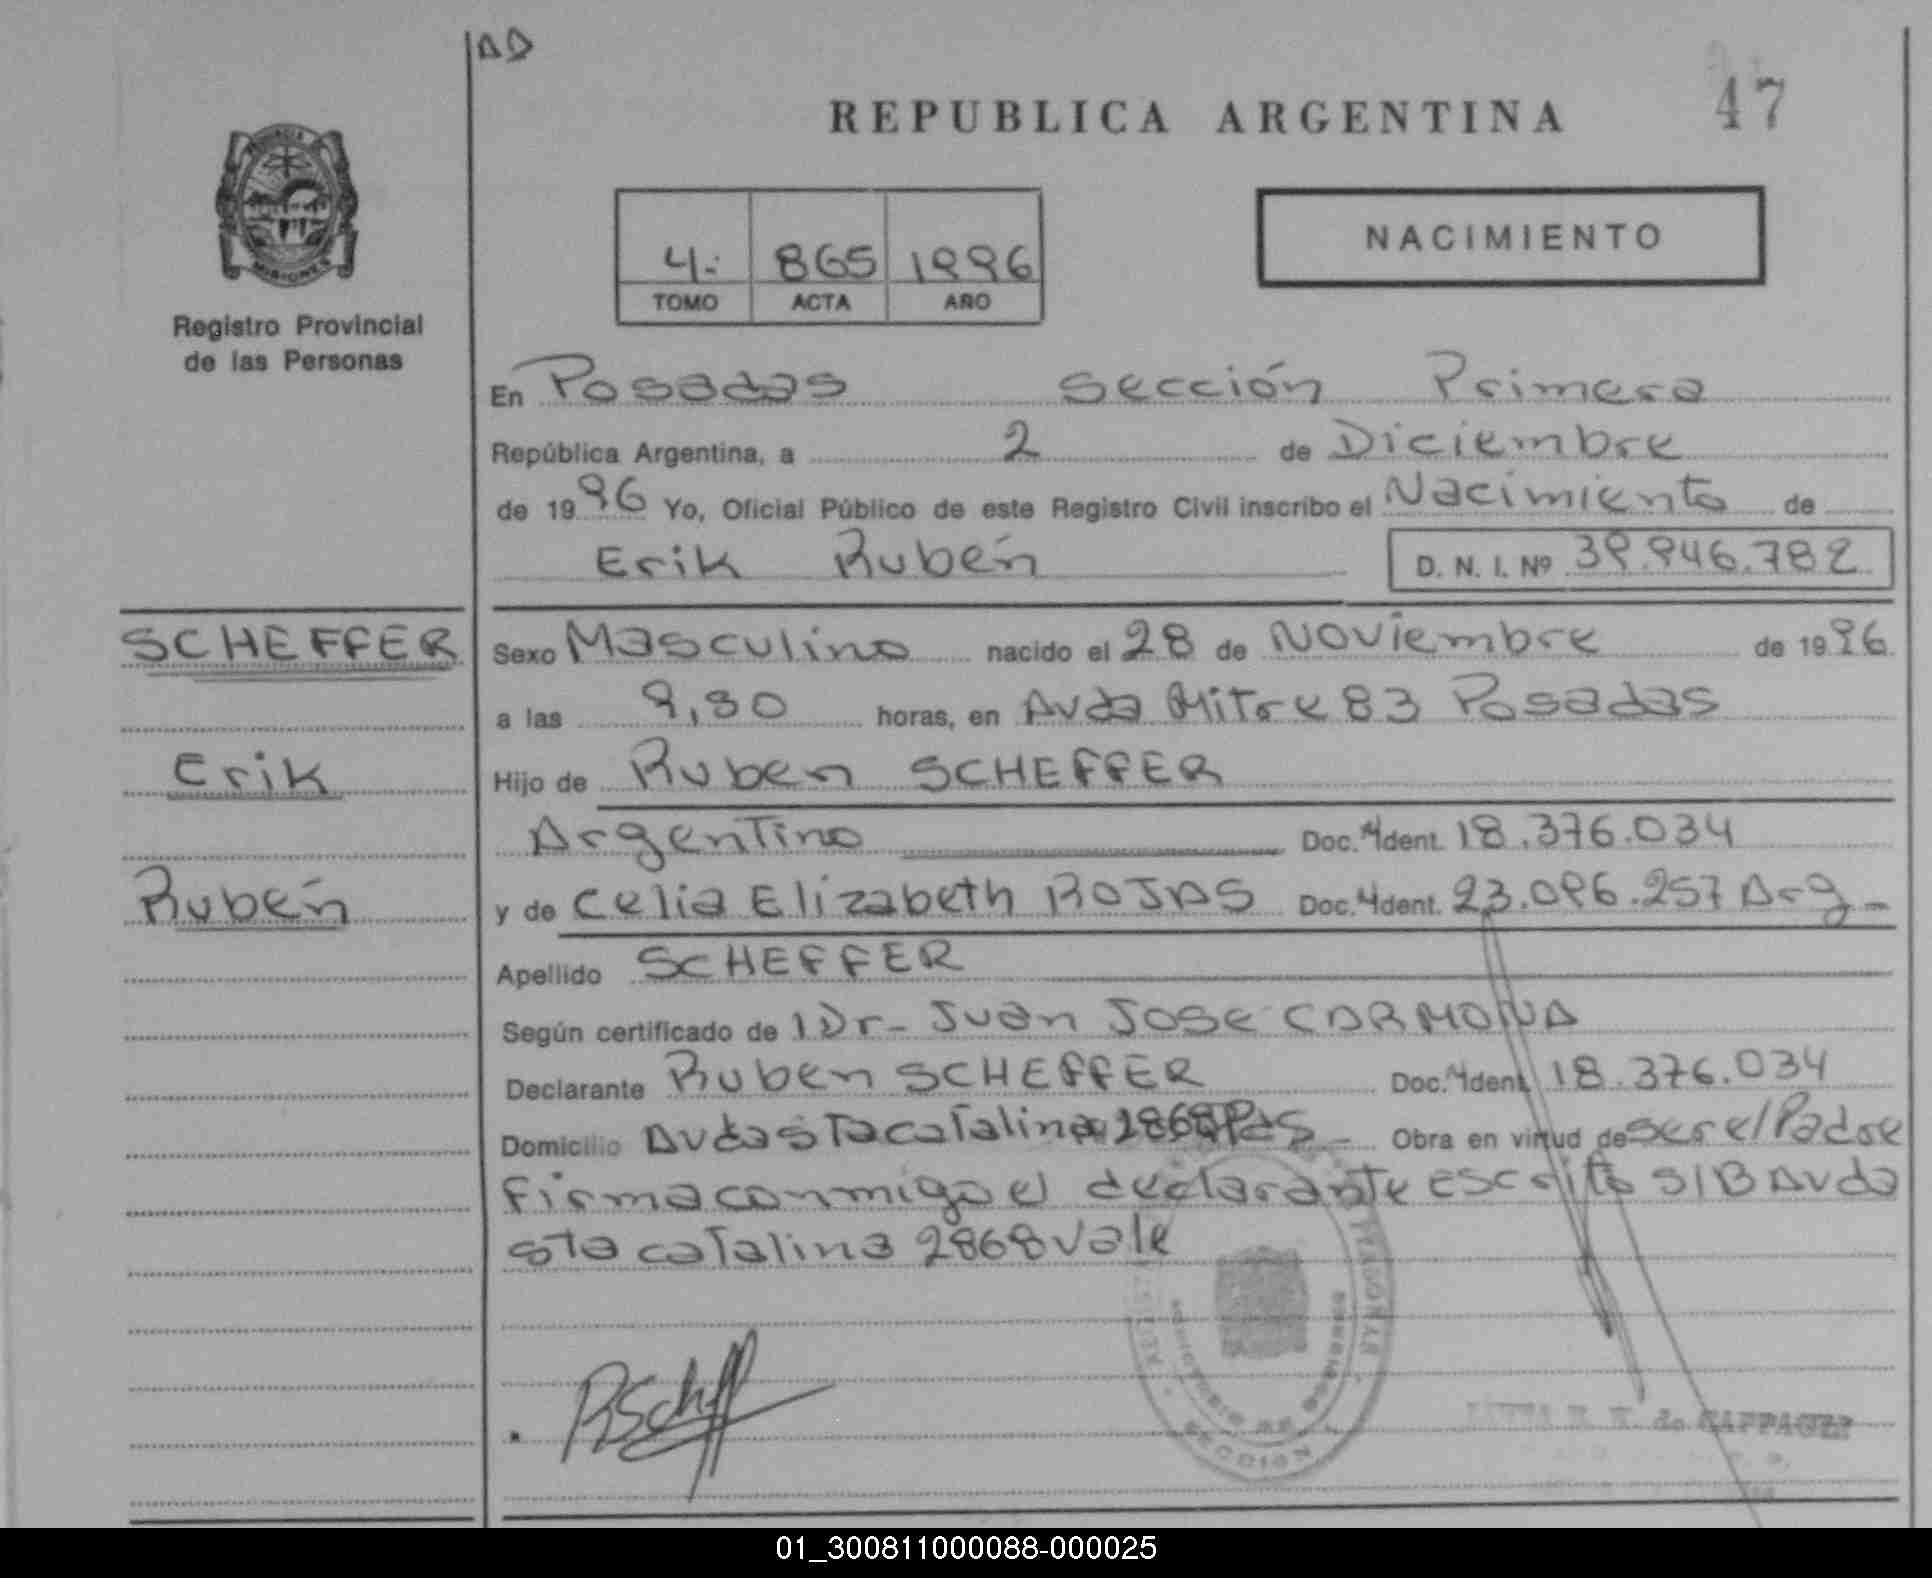 AD
REPUBLICA ARGENTINA
47
PROVINCIA
MISIONES
Registro Provincial
de las Personas
4.- 865 1996
TOMO ACTA AÑO
NACIMIENTO
En Posadas Sección Primera
República Argentina, a 2 de Diciembre
de 1996 Yo, Oficial Público de este Registro Civil inscribo el Nacimiento de
Erik Rubén D. N. I. Nº 39.946.782
SCHEFFER
Erik
Rubén
Sexo Masculino nacido el 28 de Noviembre de 1996
a las 9,30 horas, en Avda Mitre 83 Posadas
Hijo de Ruben SCHEFFER
Argentino Doc. Ident. 18.376.034
y de Celia Elizabeth ROJAS Doc. Ident. 23.096.257 Arg-
Apellido SCHEFFER
Según certificado de 1 Dr- Juan Jose CARMONA
Declarante Ruben SCHEFFER Doc. Ident. 18.376.034
Domicilio Avda Sta catalina 2868 Pdas- Obra en virtud de ser el Padre
firma conmigo el declarante escrito S/B Avda
sta catalina 2868 vale
SECCION 1
de CAPPAGLI
01_300811000088-000025